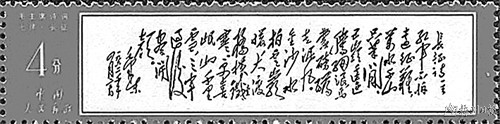 长征诗一首
红军不怕
远征难
万水千山
只等闲
五岭逶迤
腾细浪乌
蒙磅礴
走泥丸
金沙水
拍云崖
暖大渡
桥横铁
索寒更喜
岷山千里
雪三军
过后
尽开
颜
毛泽东
4分